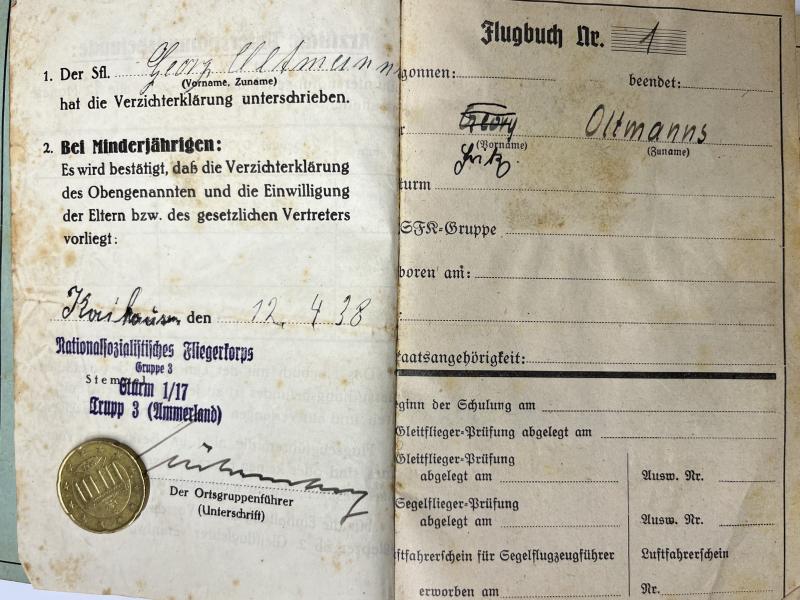 1. Der Sfl. Georg Oltmann
(Vorname, Zuname)
hat die Verzichterklärung unterschrieben.
2. Bei Minderjährigen:
Es wird bestätigt, daß die Verzichterklärung
des Obengenannten und die Einwilligung
der Eltern bzw. des gesetzlichen Vertreters
vorliegt:
Kaihausen den 12. 4 38
Nationalsozialistisches Fliegerkorps
Gruppe 3
Stempel
Sturm 1/17
Trupp 3 (Ammerland)
Der Ortsgruppenführer
(Unterschrift)
Flugbuch Nr. 1
gonnen: beendet:
r Georg Oltmanns
(Vorname) (Zuname)
Fritz
turm
SFK-Gruppe
boren am:
taatsangehörigkeit:
ginn der Schulung am
Gleitflieger-Prüfung abgelegt am
Gleitflieger-Prüfung
abgelegt am Ausw. Nr.
Segelflieger-Prüfung
abgelegt am Ausw. Nr.
ftfahrerschein für Segelflugzeugführer Luftfahrerschein
erworben am Nr.